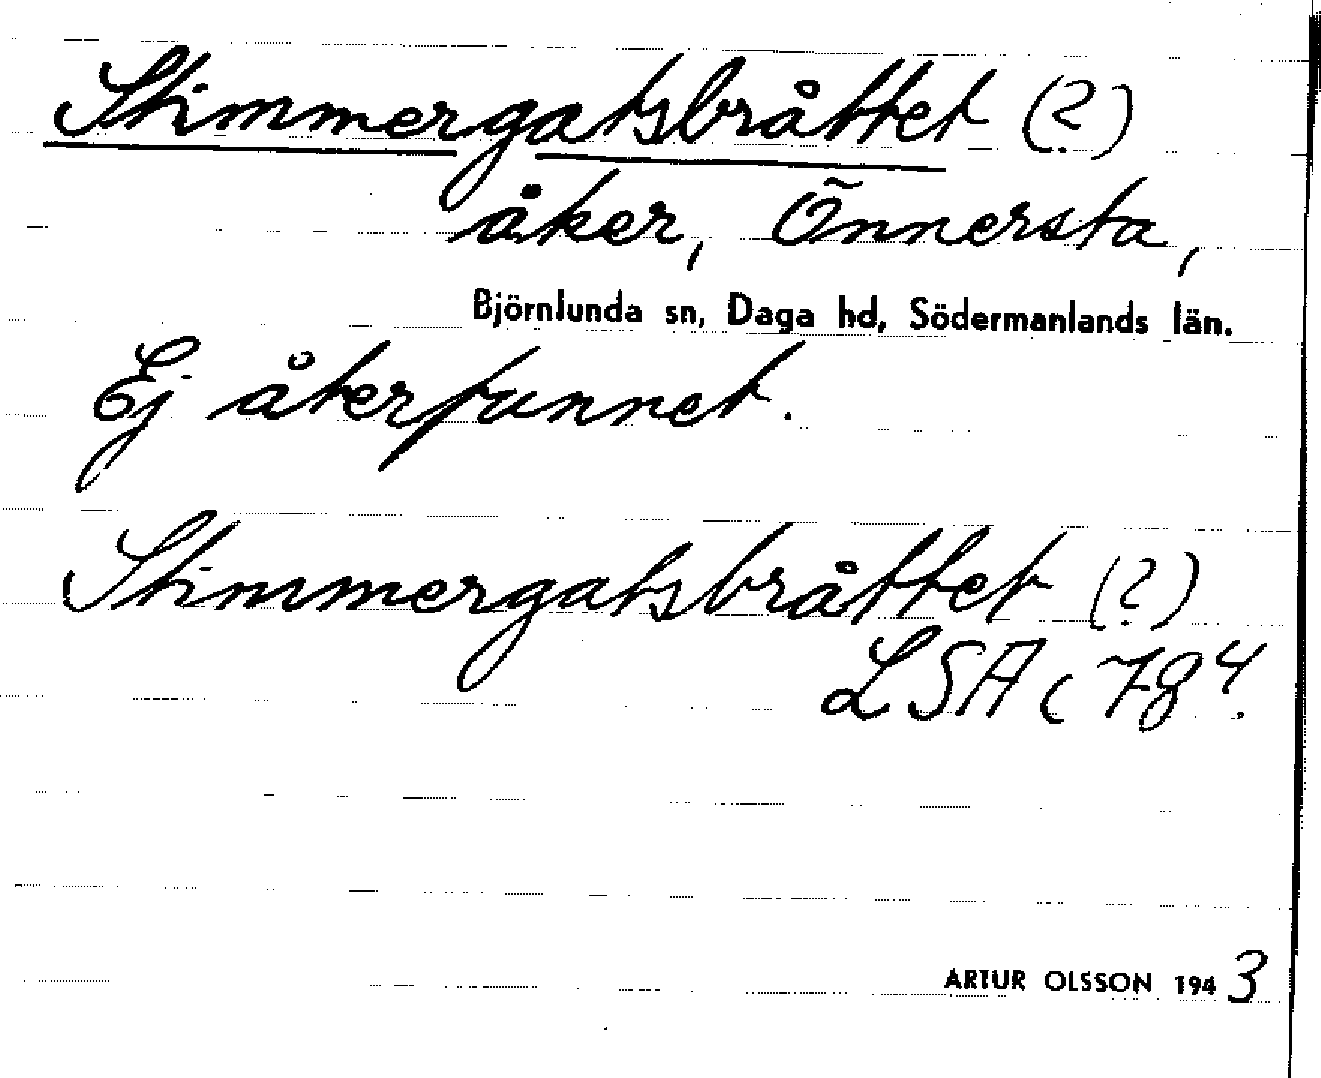 Stimmergatsbråttet (?)
åker, Önnersta,
Björnlunda sn, Daga hd, Södermanlands län.
Ej återfunnet.
Stimmergatsbråttet (?)
LSA C 78⁴.
ARTUR OLSSON 1943